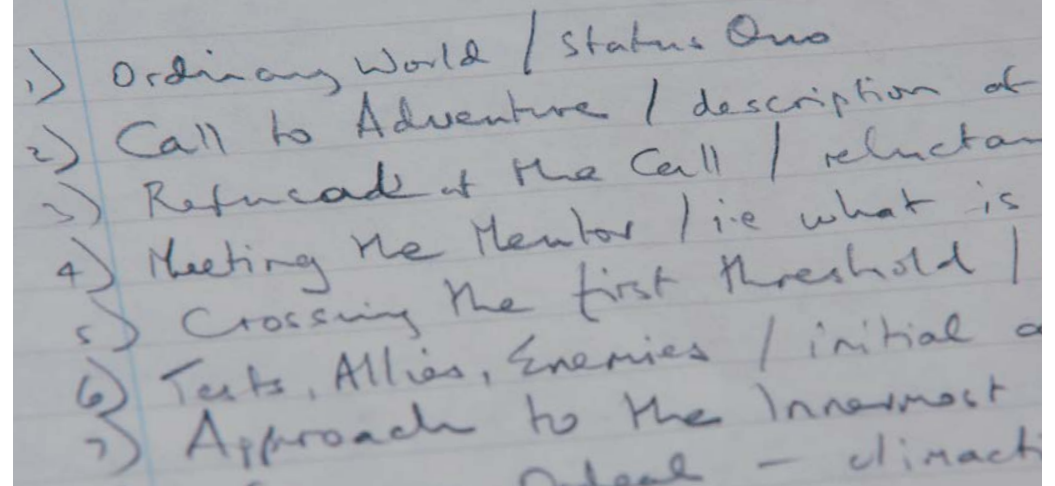 1) Ordinary World / Status Quo
2) Call to Adventure / description of
3) Refucade of the Call / reluctan
4) Meeting the Mentor / i.e what is
5) Crossing the first threshold /
6) Tests, Allies, Enemies / initial a
7) Approach to the Innermost
Ordeal - climacti